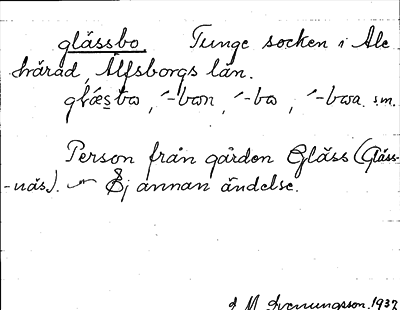 glässbo Tunge socken i Ale
härad, Älfsborgs län.
glǽsbo, ´-bon, ´-bo, ´-boa. sm.
Person från gården Gläss (Gläss-
-näs). — Ej annan ändelse.
Svenungsson. 1937